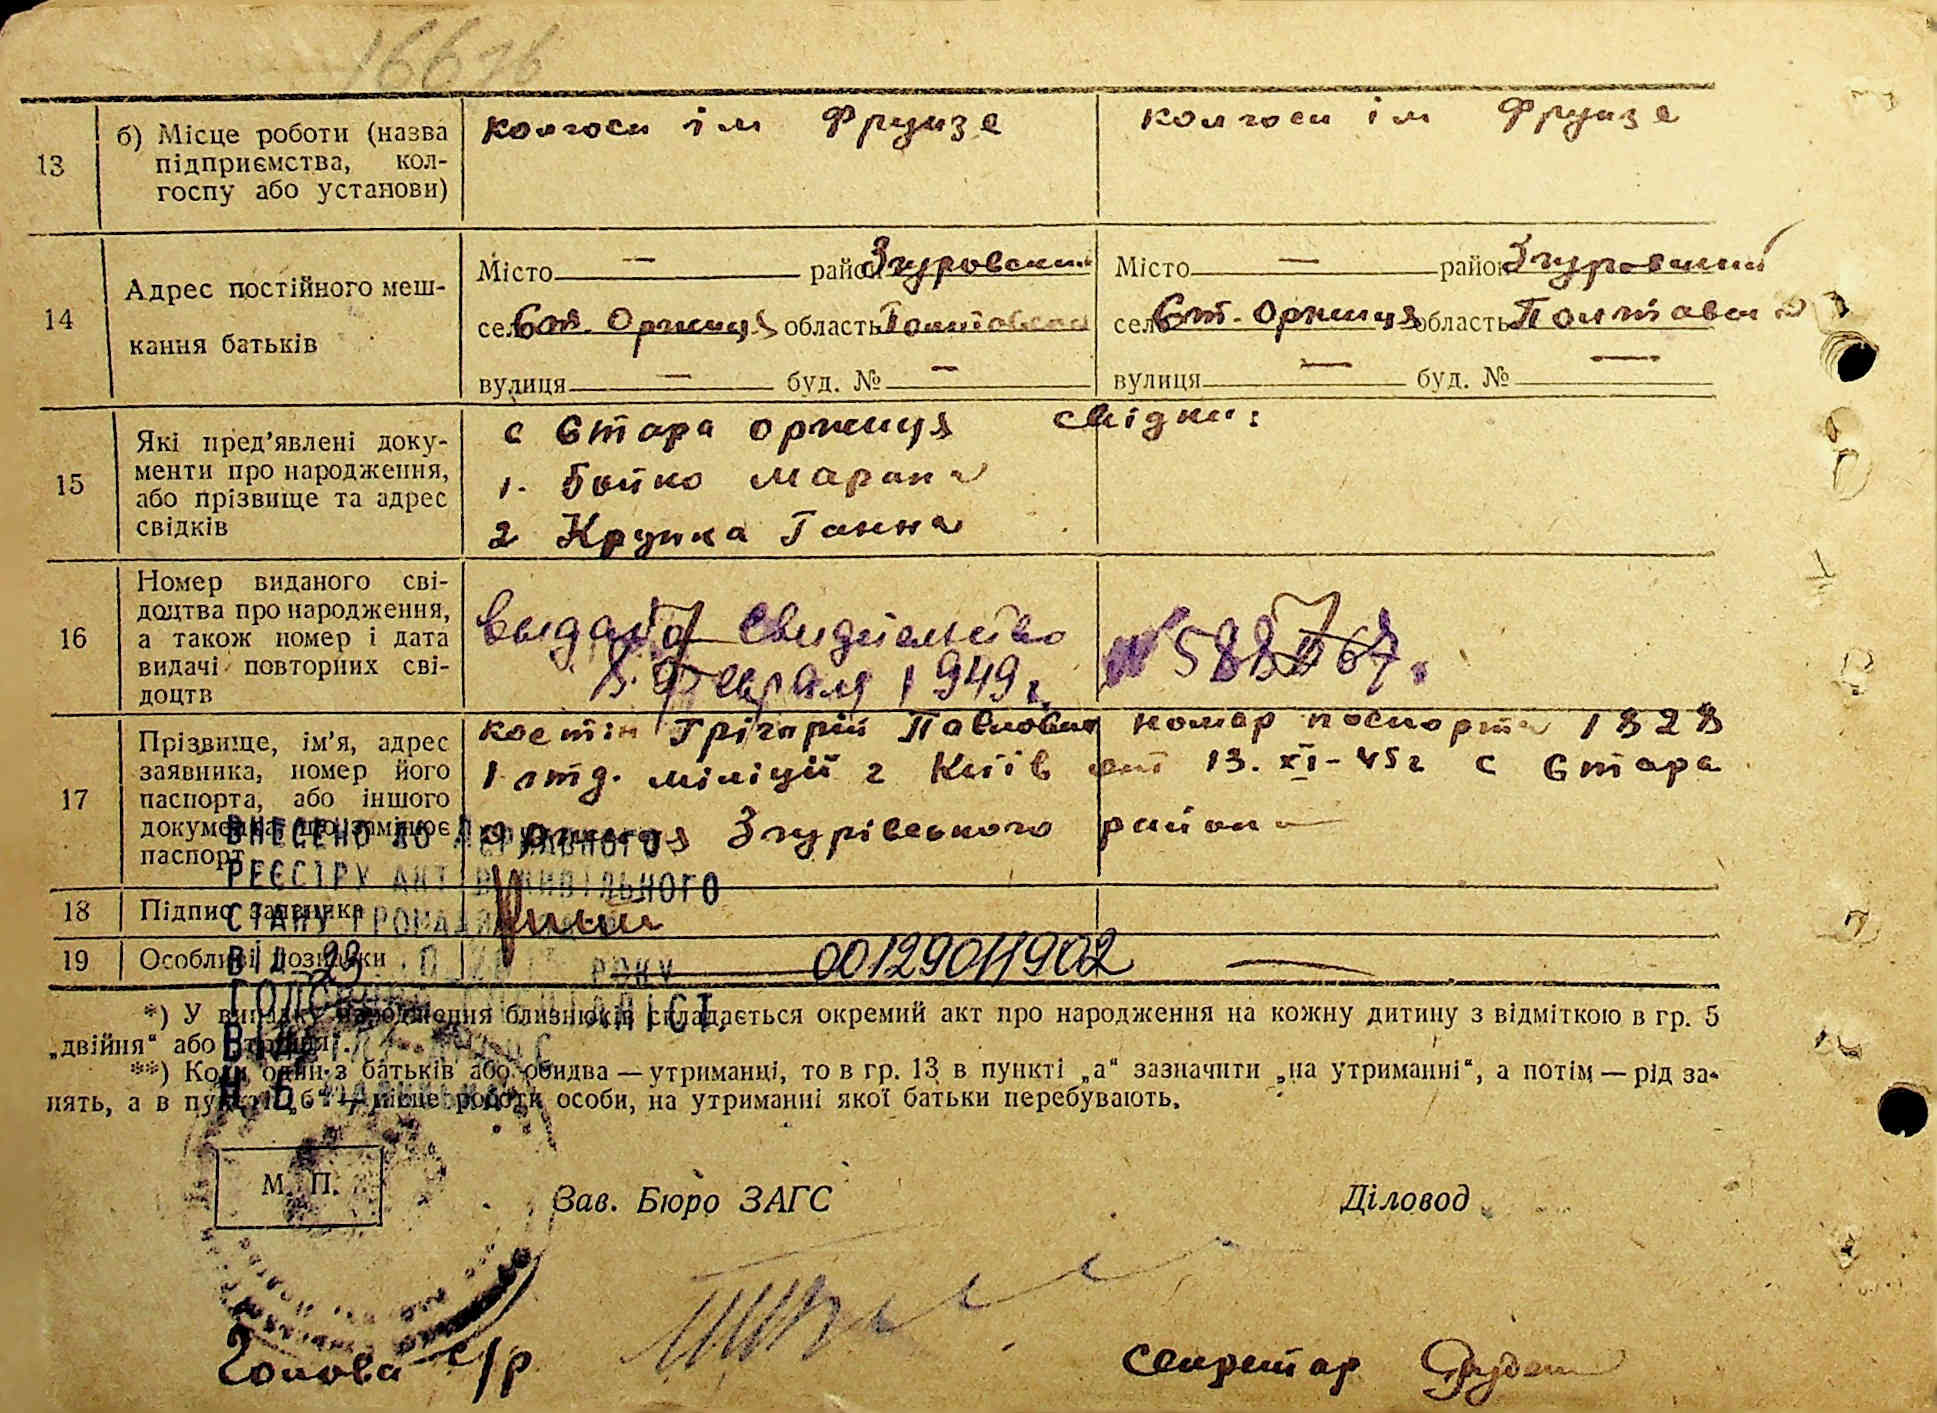 16676
13 б) Місце роботи (назва підприємства, колгоспу або установи) колгосп ім Фрунзе колгосп ім Фрунзе
14 Адрес постійного мешкання батьків
Місто — район Згуровский Місто — район Згуровский
село Ст. Оржиця область Полтавская село Ст. Оржиця область Полтавська
вулиця — буд. № — вулиця — буд. № —
15 Які пред’явлені документи про народження, або прізвище та адрес свідків
с Стара оржиця свідки:
1. Бойко Мари
2 Крупка Ганна
16 Номер виданого свідоцтва про народження, а також номер і дата видачі повторних свідоцтв
выдано свидительство
8 февраля 1949 г.
17 Прізвище, ім’я, адрес заявника, номер його паспорта, або іншого документа, що замінює паспорт
костін Грігорій Павлович номер паспорта 1828
1 отд. міліції г Київ от 13. XI-45г с Стара
оржиця Згурівського района
18 Підпис заявника
19 Особливі познаки 00129011902 —
ВНЕСЕНО ДО ДЕРЖАВНОГО
РЕЄСТРУ АКТІВ ЦИВІЛЬНОГО
СТАНУ ГРОМАДЯН
ВІД 23 РОКУ
ГОЛОВНИЙ СПЕЦІАЛІСТ
*) У випадку народження близнюків складається окремий акт про народження на кожну дитину з відміткою в гр. 5
„двійня“ або „трійня“.
**) Коли один з батьків або обидва — утриманці, то в гр. 13 в пункті „а“ зазначити „на утриманні“, а потім — рід за-
нять, а в пункті „б“ — місце роботи особи, на утриманні якої батьки перебувають.
М. П.
Зав. Бюро ЗАГС Діловод
Голова с/р секретар